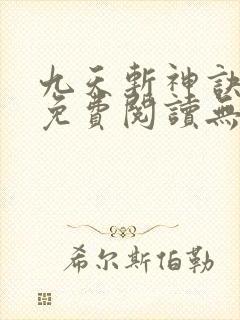 九天斬神訣
免費閱讀無
希尔斯伯勒